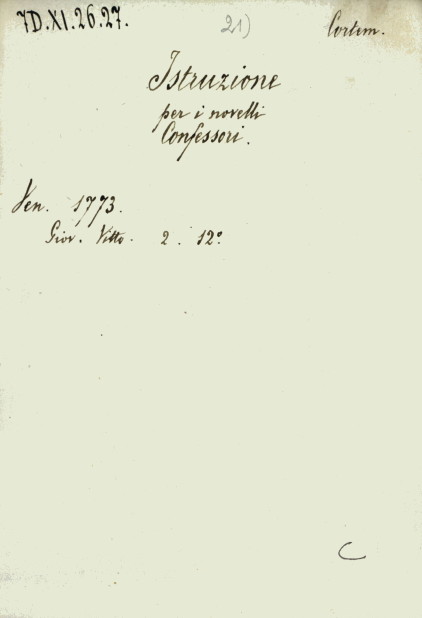 7D.XI.26.27. 21) Cortem.
Istruzione
per i novelli
Confessori.
Ven. 1773.
Giov. Vitto. 2. 12º
C